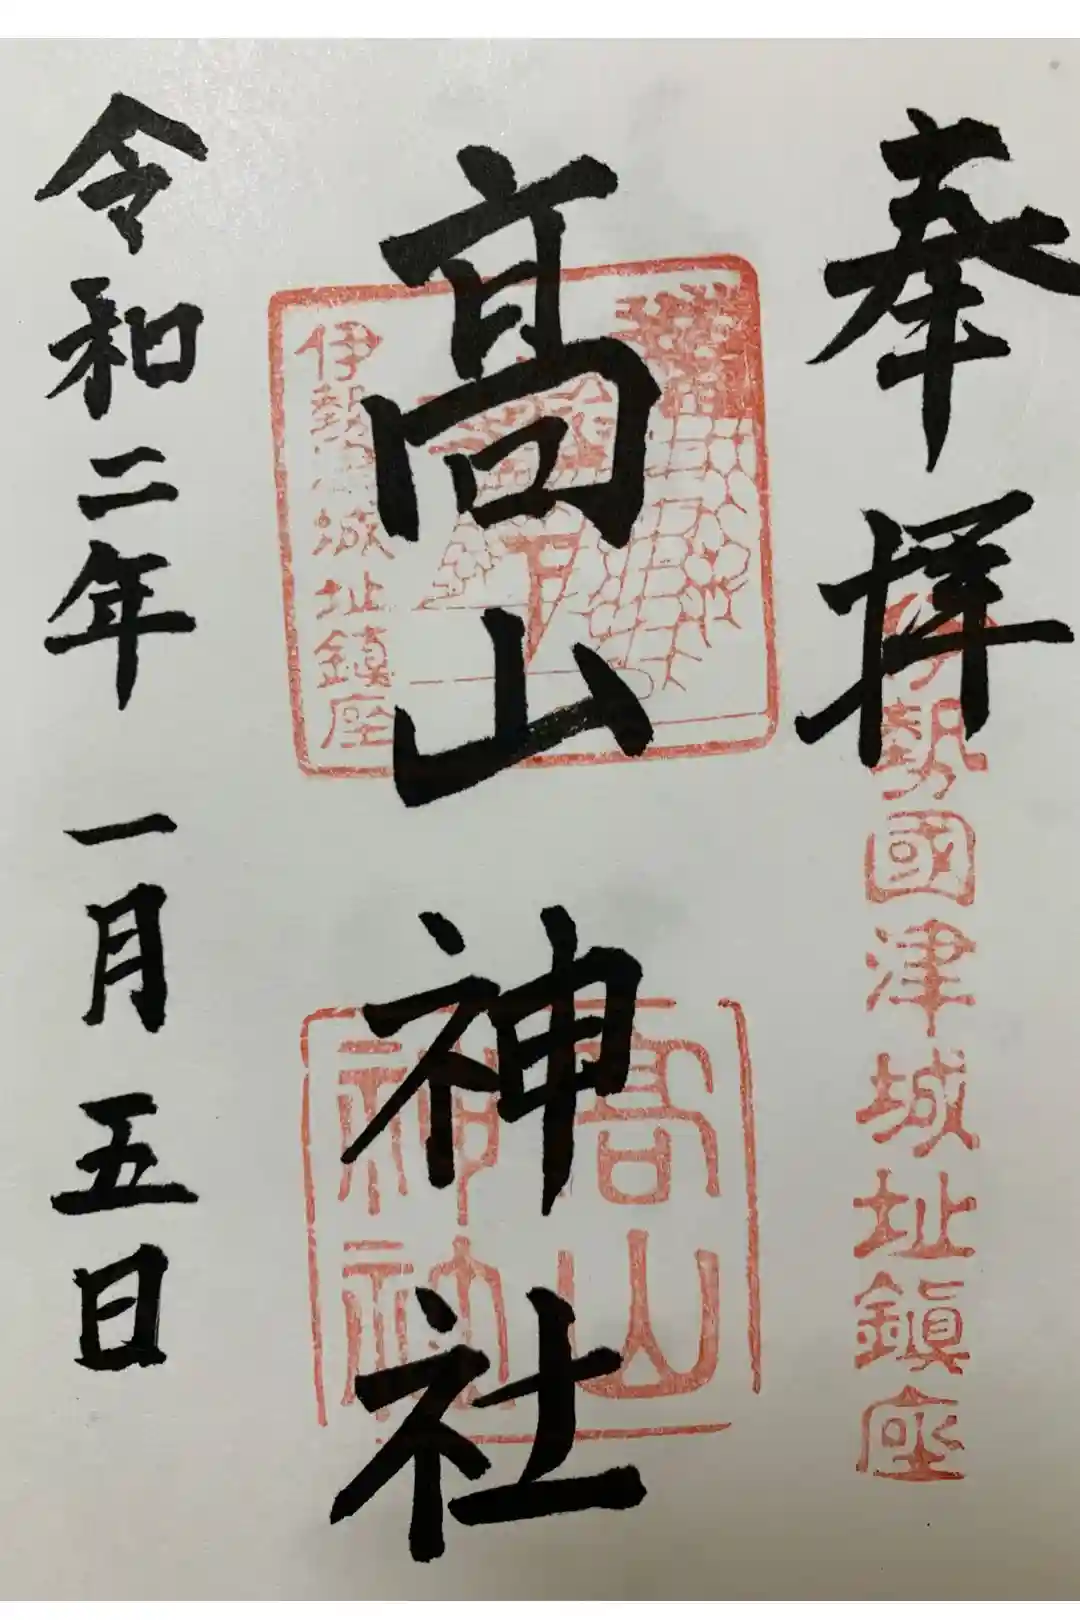 奉拝
伊勢國津城址鎮座
髙山神社
伊勢津城址鎮座
高山
神社
令和二年一月五日